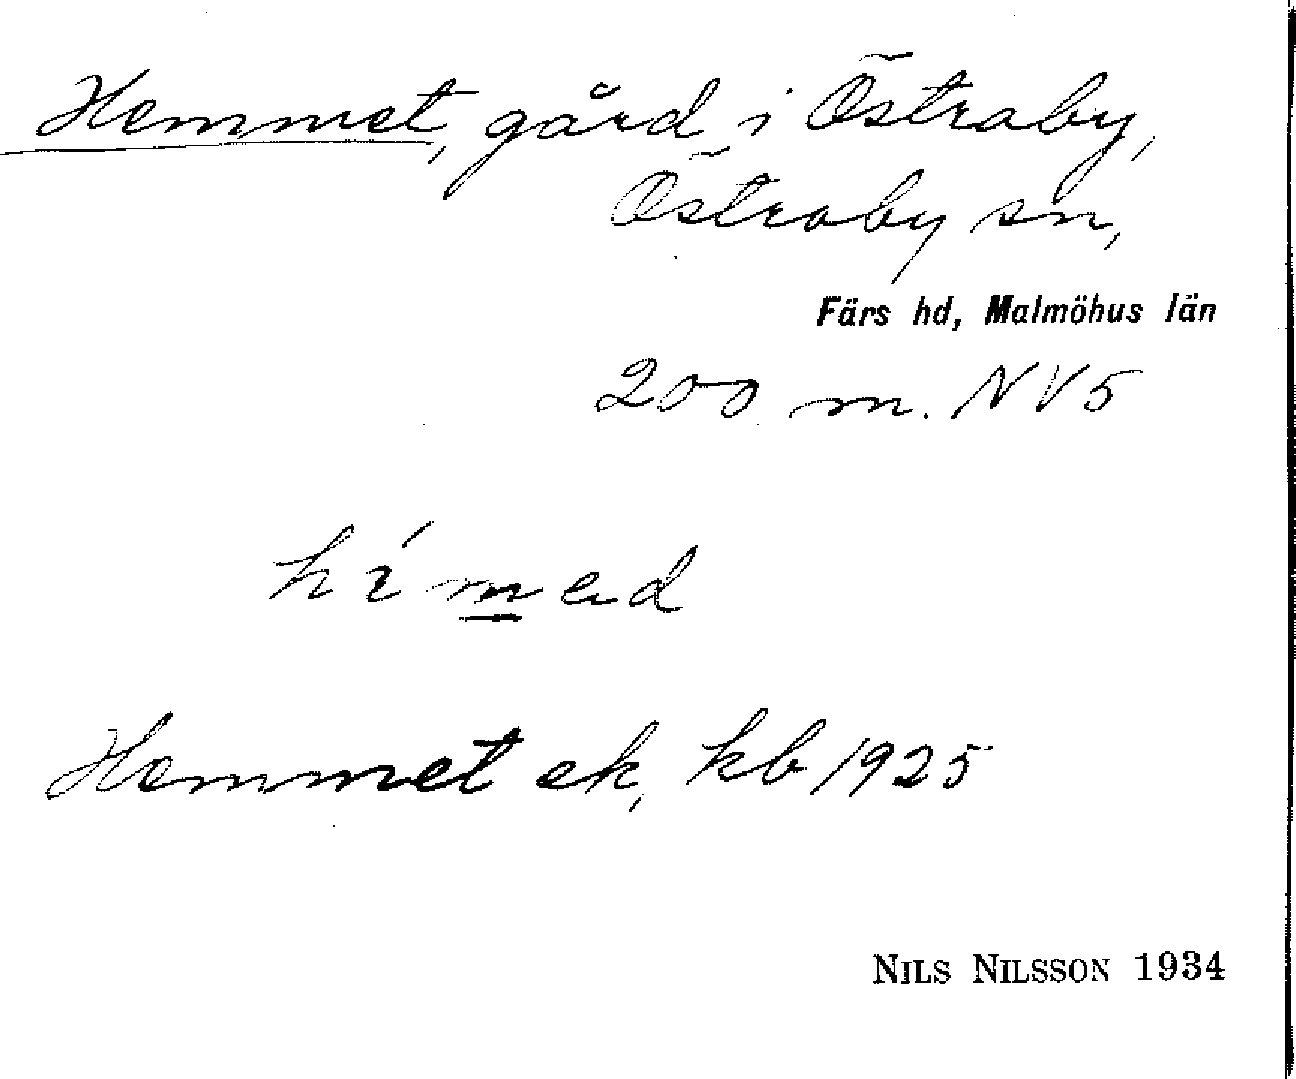 Hemmet, gård i Östraby,
Östraby sn,
Färs hd, Malmöhus län
200 m. NV5
Hemmet ek, kb 1925
NILS NILSSON 1934